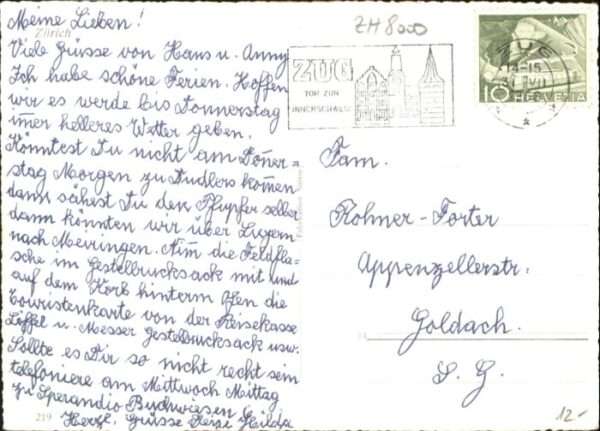 Meine Lieben!
Zürich
Viele Grüsse von Hans u. Anny
Ich habe schöne Ferien. Hoffen
wir es werde bis Donnerstag
immer helleres Wetter geben.
Könntest Du nicht am Doner=
stag Morgen zu Dudlers komen
dann sähest Du den Pfupfer selber
dann könnten wir über Luzern
nach Meiringen. Nim die Feldfla=
sche im Gestellrucksack mit und
auf dem Korb hinterm Ofen die
Touristenkarte von der Reisekasse
Löffel u. Messer Gestellrucksack usw.
Sollte es Dir so nicht recht sein
telefoniere am Mittwoch Mittag
zu Sperandio Buchwiesen
Herzl. Grüsse Hilda
219
ZH 8000
ZUG
TOR ZUR
INNERSCHWEIZ
ZUG
10 HELVETIA
Fam.
Rohner-Forter
Appenzellerstr.
Goldach.
S. G.
12-